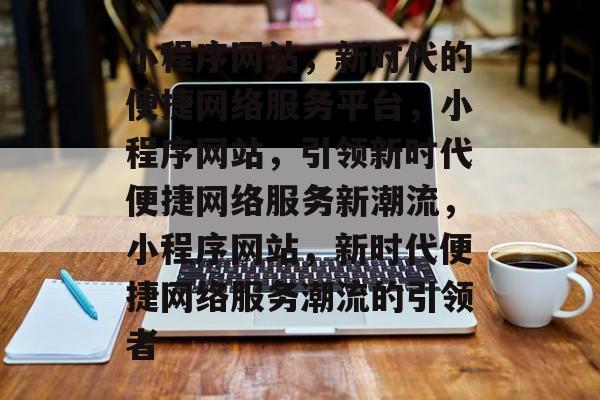 小程序网站，新时代的
便捷网络服务平台，小
程序网站，引领新时代
便捷网络服务新潮流，
小程序网站，新时代便
捷网络服务潮流的引领
者